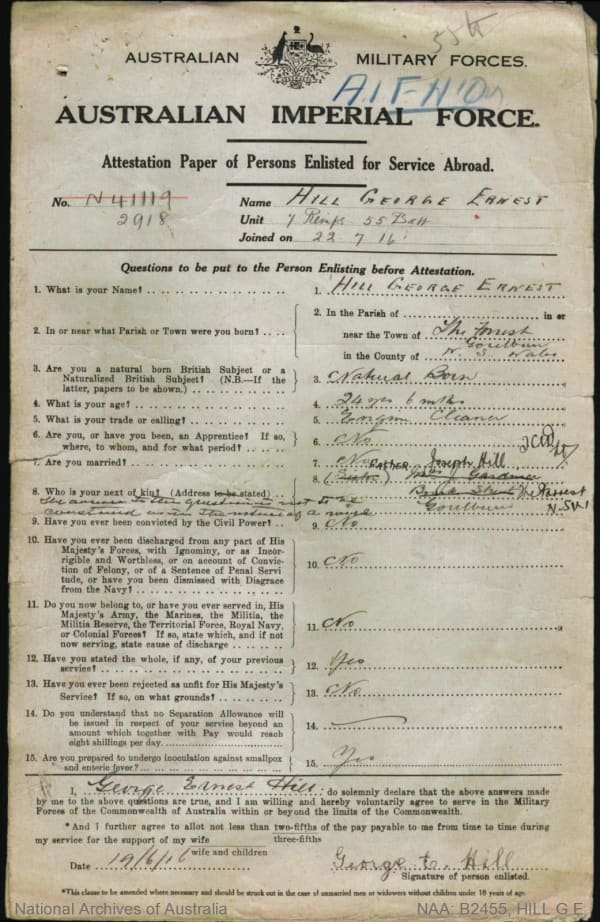 55th
AUSTRALIAN MILITARY FORCES.
A.I.F.
AUSTRALIAN IMPERIAL FORCE.
Attestation Paper of Persons Enlisted for Service Abroad.
No. N41119 Name HILL GEORGE ERNEST
2918 Unit 7 Reinfs 55 Batt
Joined on 22.7.16
Questions to be put to the Person Enlisting before Attestation.
1. What is your Name? 1. HILL GEORGE ERNEST
2. In or near what Parish or Town were you born? 2. In the Parish of in or
near the Town of The Forest
Goulburn
in the County of N. S. Wales
3. Are you a natural born British Subject or a
Naturalized British Subject? (N.B.—If the
latter, papers to be shown.) 3. Natural Born
4. What is your age? 4. 24 yrs 6 mths
5. What is your trade or calling? 5. Engine Cleaner
6. Are you, or have you been, an Apprentice? If so,
where, to whom, and for what period? 6. No
7. Are you married? 7. No
FATHER Joseph Hill
8. Who is your next of kin? (Address to be stated) 8. (Sister) Mrs J. Gardner
The answer to this question is not to be
construed as in the nature of a will
The Forrest
Goulburn N.S.W
9. Have you ever been convicted by the Civil Power? 9. No
10. Have you ever been discharged from any part of His
Majesty's Forces, with Ignominy, or as Incor-
rigible and Worthless, or on account of Convic-
tion of Felony, or of a Sentence of Penal Servi
tude, or have you been dismissed with Disgrace
from the Navy? 10. No
11. Do you now belong to, or have you ever served in, His
Majesty's Army, the Marines, the Militia, the
Militia Reserve, the Territorial Force, Royal Navy,
or Colonial Forces? If so, state which, and if not
now serving, state cause of discharge 11. No
12. Have you stated the whole, if any, of your previous
service? 12. Yes
13. Have you ever been rejected as unfit for His Majesty's
Service? If so, on what grounds? 13. No
14. Do you understand that no Separation Allowance will
be issued in respect of your service beyond an
amount which together with Pay would reach
eight shillings per day. 14.
15. Are you prepared to undergo inoculation against smallpox
and enteric fever? 15. Yes
I, George Ernest Hill do solemnly declare that the above answers made
by me to the above questions are true, and I am willing and hereby voluntarily agree to serve in the Military
Forces of the Commonwealth of Australia within or beyond the limits of the Commonwealth.
*And I further agree to allot not less than two-fifths of the pay payable to me from time to time during
three-fifths
my service for the support of my wife
wife and children
Date 19/6/16 George E. Hill
Signature of person enlisted.
*This clause to be amended where necessary and should be struck out in the case of unmarried men or widowers without children under 18 years of age.
National Archives of Australia NAA: B2455, HILL G E